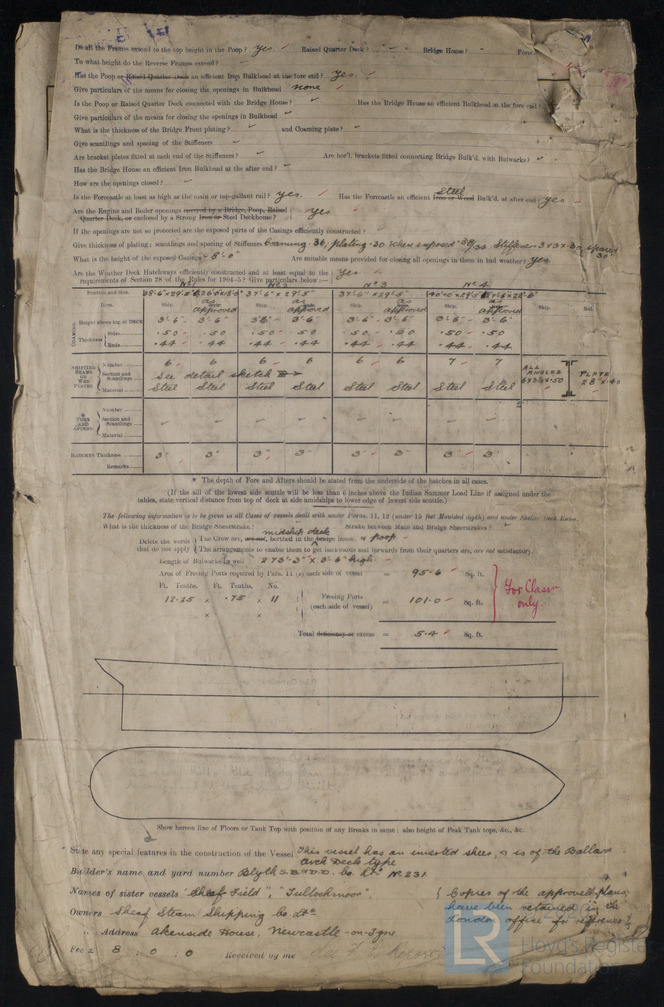 Do all the Frames extend to the top height in the Poop? yes Raised Quarter Deck? Bridge House? Fore
To what height do the Reverse Frames extend?
Has the Poop or Raised Quarter Deck an efficient Iron Bulkhead at the fore end? yes
Give particulars of the means for closing the openings in Bulkhead none
Is the Poop or Raised Quarter Deck connected with the Bridge House? Has the Bridge House an efficient Bulkhead at the fore end?
Give particulars of the means for closing the openings in Bulkhead
What is the thickness of the Bridge Front plating? and Coaming plate?
Give scantlings and spacing of the Stiffeners
Are bracket plates fitted at each end of the Stiffeners? Are hor'l. brackets fitted connecting Bridge Bulk'd. with Bulwarks?
Has the Bridge House an efficient Iron Bulkhead at the after end?
How are the openings closed?
Is the Forecastle at least as high as the main or top-gallant rail? yes. Has the Forecastle an efficient Iron or Wood Steel Bulk'd. at after end? yes
Are the Engine and Boiler openings covered by a Bridge, Poop, Raised
Quarter Deck, or enclosed by a Strong Iron or Steel Deckhouse? yes
If the openings are not so protected are the exposed parts of the Casings efficiently constructed?
Give thickness of plating; scantlings and spacing of Stiffeners Coaming .36, plating .30 when exposed
What is the height of the exposed Casings? 8'-0" Are suitable means provided for closing all openings in them in bad weather? yes
Are the Weather Deck Hatchways efficiently constructed and at least equal to the
requirements of Section 28 of the Rules for 1904-5? Give particulars below:— Yes
Position and Size. No 1 No 2 37'-6" x 29'-5" No 3 37'-6" x 29'-5" No 4
Item. Ship. as approved Ship. as approved Ship. as approved Ship. as approved Ship. Rul.
COAMINGS Height above top of DECK 3'-6" 3'-6" 3'-6" 3'-6" 3'-6" 3'-6" 3'-6" 3'-6"
Thickness Sides .50 .50 .50 .50 .50 .50 .50 .50
Ends .44 .44 .44 .44 .44 .44 .44 .44
SHIFTING BEAMS OR WEB PLATES Number 6 6 6 6 6 6 7 7 ALL ANGLES PLATE
Section and Scantlings See detail sketch
Material Steel Steel Steel Steel Steel Steel Steel Steel
* FORE AND AFTERS. Number
Section and Scantlings
Material
HATCHES Thickness 3" 3" 3" 3" 3" 3" 3" 3"
Remarks
* The depth of Fore and Afters should be stated from the underside of the hatches in all cases.
(If the sill of the lowest side scuttle will be less than 6 inches above the Indian Summer Load Line if assigned under the
tables, state vertical distance from top of deck at side amidships to lower edge of lowest side scuttle.)
The following information is to be given in all Cases of vessels dealt with under Paras. 11, 12 (under 15 feet Moulded depth) and under Shelter Deck Rules.
What is the thickness of the Bridge Sheerstrake? Strake between Main and Bridge Sheerstrakes?
Delete the words that do not apply { The Crew are, are not, berthed in the bridge house. midship deck & poop
The arrangements to enable them to get backwards and forwards from their quarters are, are not satisfactory.
Length of Bulwarks in well 273'-3" x 3'-6" high.
Area of Freeing Ports required by Para. 11 (e) each side of vessel = 95.6 Sq. ft.
Ft. Tenths. Ft. Tenths. No.
12.25 x .75 x 11 Freeing Ports (each side of vessel) = 101.0 Sq. ft.
x x
Total deficiency or excess = 5.4 Sq. ft.
For Class only.
Show hereon line of Floors or Tank Top with position of any Breaks in same; also height of Peak Tank tops, &c., &c.
State any special features in the construction of the Vessel This vessel has an inverted sheer, & is of the Ballan
Arch Deck type
Builder's name and yard number Blyth S.B. & D.D. Co. Ltd. No. 231
Names of sister vessels "Sheaf Field", "Tullochmoor".
{ Copies of the approved plans
have been retained in the
London office for reference }
Owners Sheaf Steam Shipping Co. Ltd.
" Address Akenside House, Newcastle-on-Tyne
Fee £ 8 : 0 : 0 Received by me
LR
Lloyd's Register
Foundation